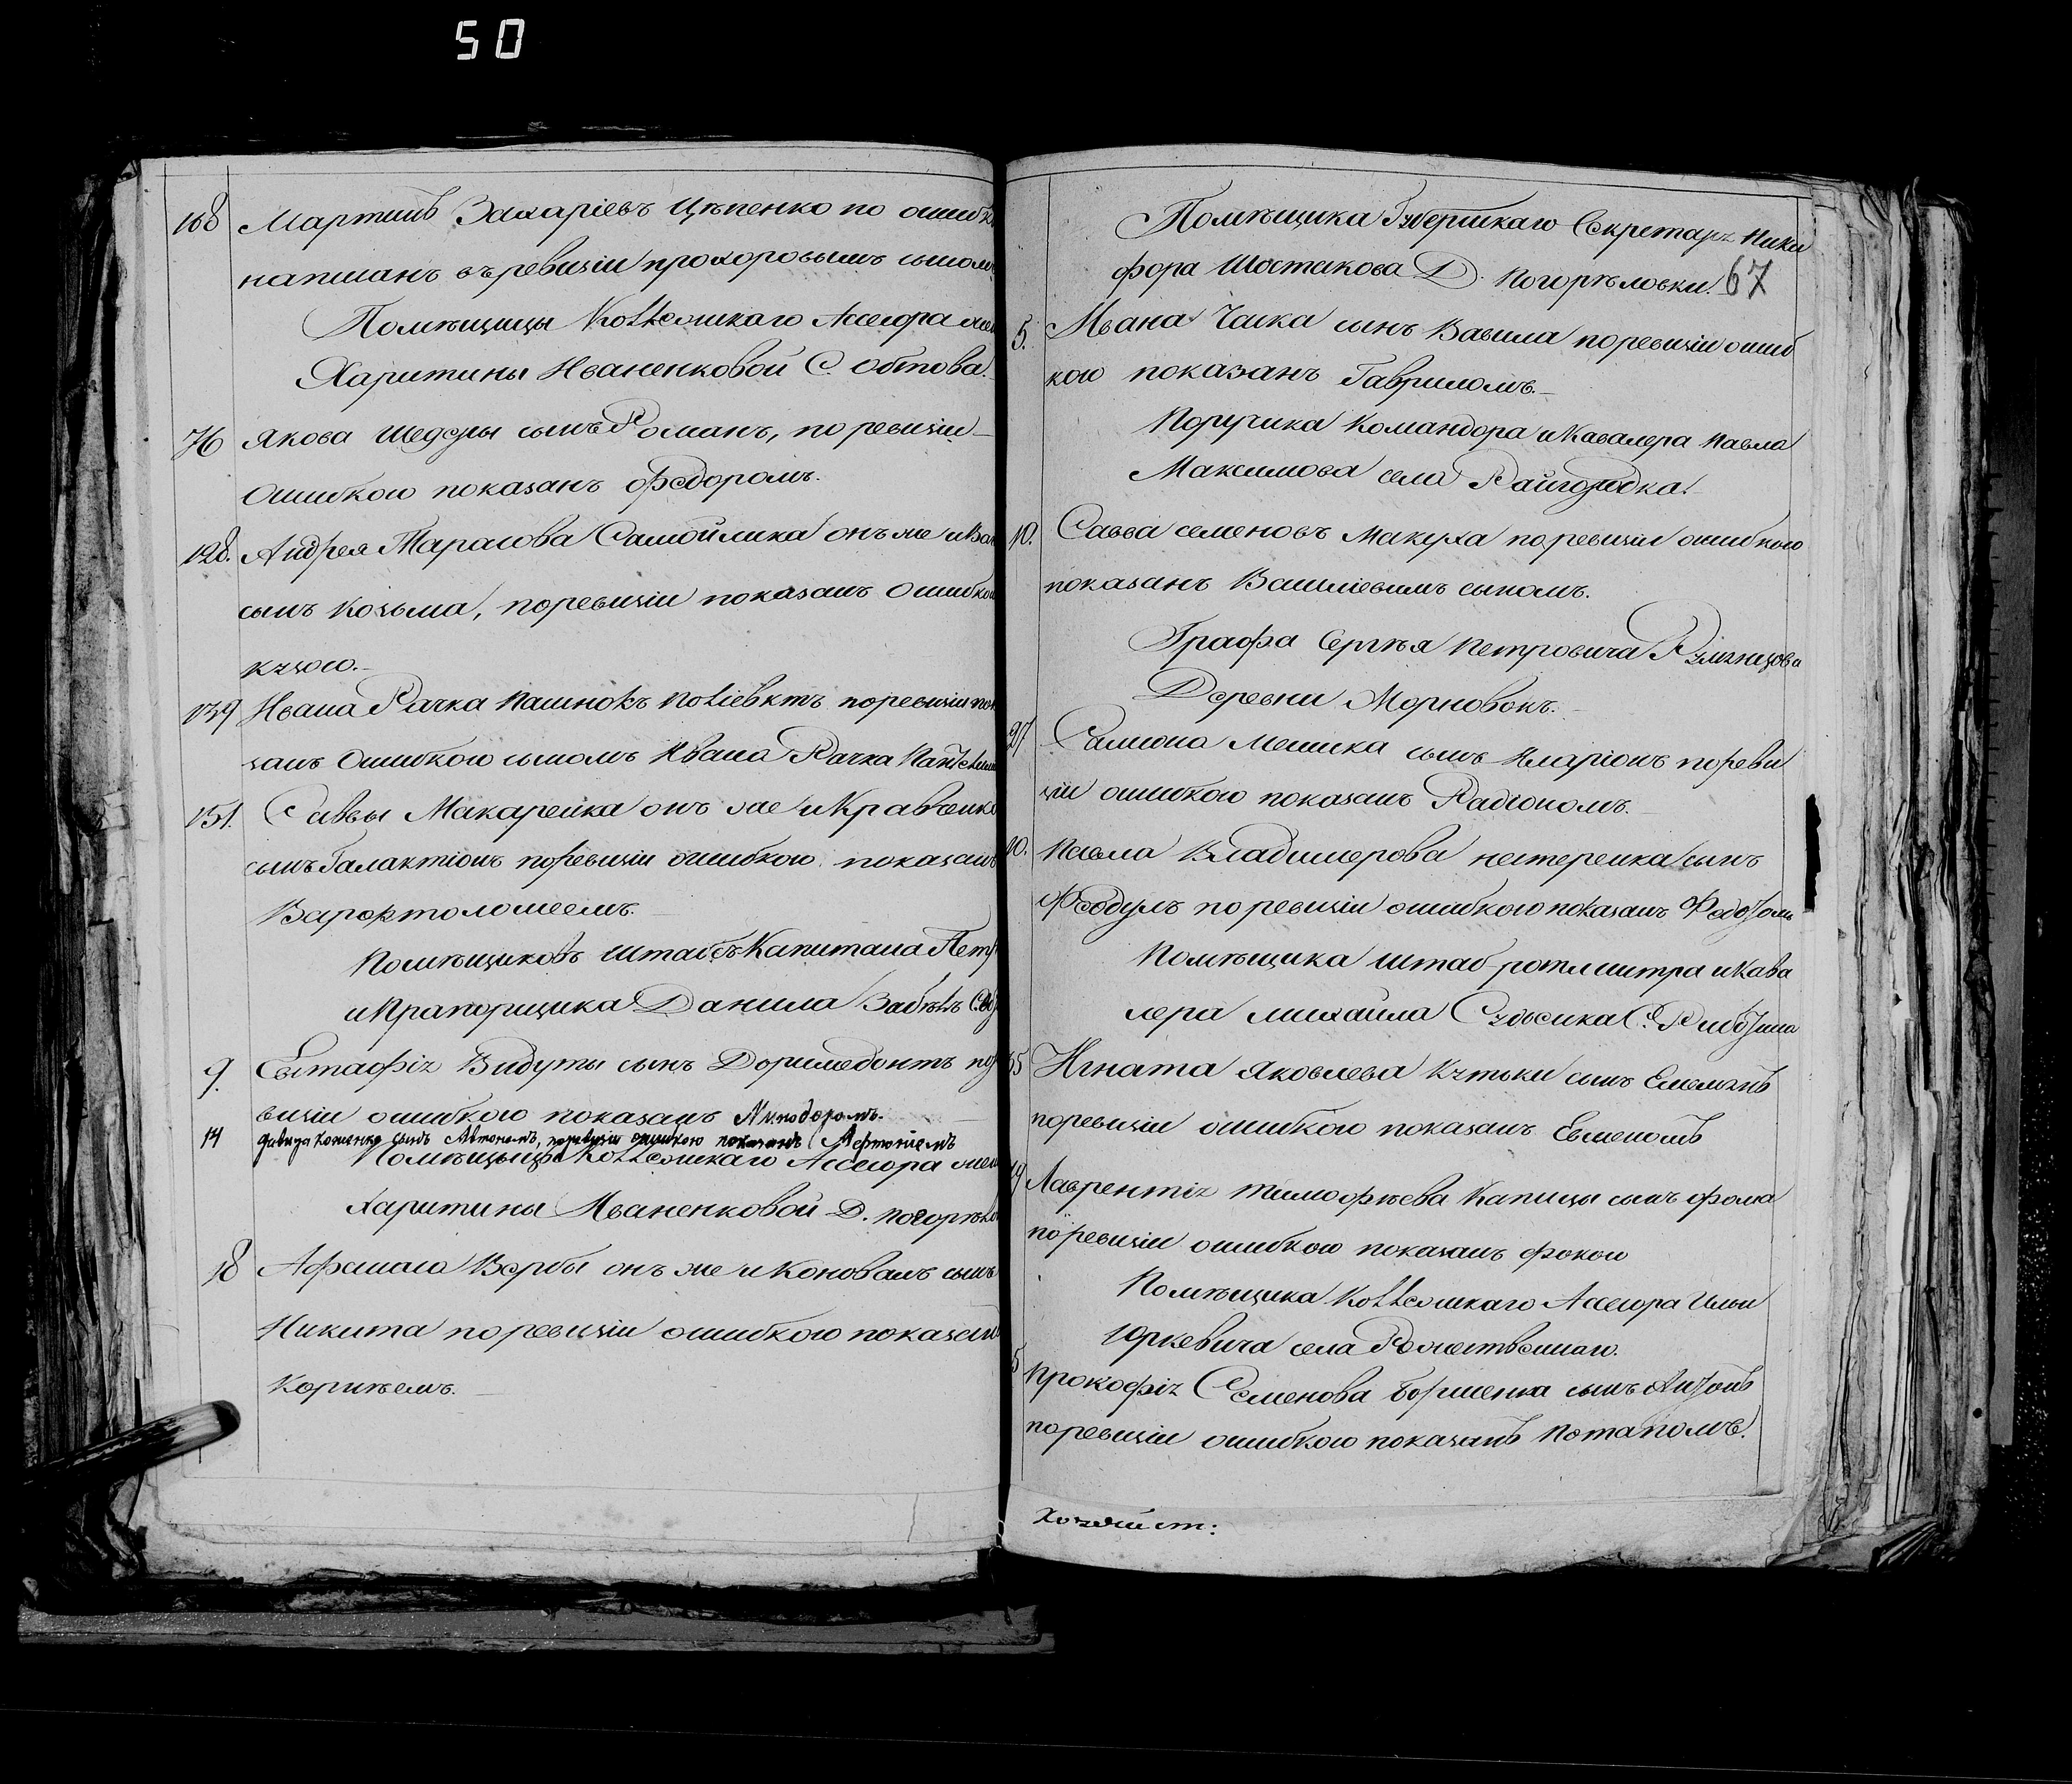 50
108 Мартинъ Захаріевъ Цѣпенко по ошибк
написанъ въ ревизіи прохоровымъ сыномъ
Помѣщицы Коллежскаго Ассесора жен
Харитины Иваненковой С. Обтова.
76 Якова Шедеры сынъ Романъ, по ревизіи
Ошибкою показанъ Федоромъ.
128. Андрея Тарасова Самойлика онъ же и
сынъ Козьма, поревизіи показанъ Ошибкою
кузмою.
139 Ивана Рачка поревизіи пок
занъ Ошибкою сыномъ Ивана Рачка
151. Саввы Макаренка онъ же и Кравченко
сынъ Галактіонъ поревизіи ошибкою показанъ
Варфтоломеемъ.
Помѣщиковъ Штабсъ Капитана Петр
и Прапорщика Данила Забѣлъ
9. Евстафія Видуты сынъ Доримедонтъ пор
визіи ошибкою показанъ Никодоромъ.
14 Давида Коженка сынъ Автономъ, поревизіи ошибкою показанъ
Помѣщицы Коллежскаго Ассесора жен
Харитины Иваненковой Д. погорѣло
18 Афанасія Вербы онъ же и Коновалъ сынъ
Никита поревизіи ошибкою показанъ
Корнѣемъ.
Помѣщика Губернскаго Секретаря Ники
фора Шостакова Д. Погорѣловки. 67
5. Ивана Часка сынъ Вавила поревизіи ошиб
кою показанъ Гавриломъ.
Поручика Командора и Кавалера Павла
Максимова села Райгородка.
10. Савва семеновъ Макуха поревизіи ошибкою
показанъ Василіевымъ сыномъ.
Графа Сергѣя Петровича Румянцова
Деревни
27 Самсона сынъ Иларіонъ пореви
зіи ошибкою показанъ Радіономъ.
30. Павла Владимерова нестеренка сынъ
Феодулъ поревизіи ошибкою показанъ
Помѣщика штаб-ротмистра и Кава
лера михаила С.
35 Игната Яковлева Кутьки сынъ Емельянъ
поревизіи ошибкою показанъ Евменомъ
Лаврентія тимофѣева Капицы сынъ фома
поревизіи ошибкою показанъ фокою
Помѣщика Коллежскаго Ассесора Ильи
Юркевича села Рожественнаго.
5 Прокофія Семенова сынъ Антонъ
поревизіи ошибкою показанъ Потапомъ.